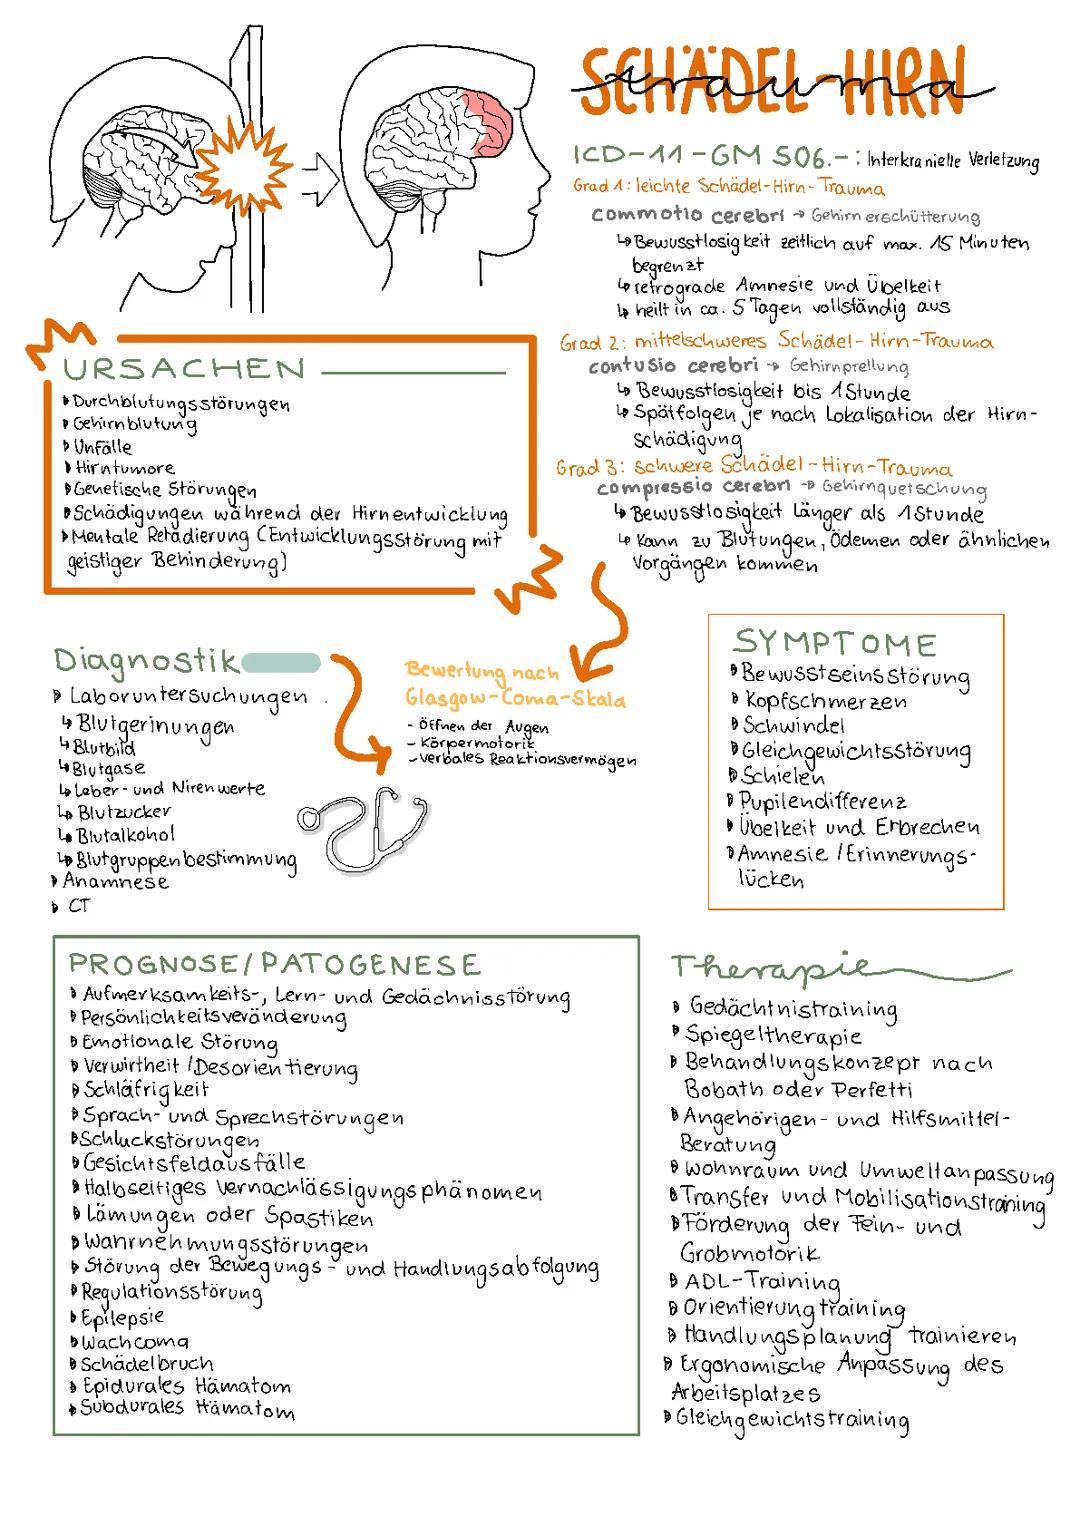 SCHÄDEL-HIRN
trauma
ICD-11-GM S06.-: Interkranielle Verletzung
Grad 1: leichte Schädel-Hirn-Trauma
commotio cerebri → Gehirnerschütterung
↳ Bewusstlosigkeit zeitlich auf max. 15 Minuten
begrenzt
↳ retrograde Amnesie und Übelkeit
↳ heilt in ca. 5 Tagen vollständig aus
Grad 2: mittelschweres Schädel-Hirn-Trauma
contusio cerebri → Gehirnprellung
↳ Bewusstlosigkeit bis 1 Stunde
↳ Spätfolgen je nach Lokalisation der Hirn-
schädigung
Grad 3: schwere Schädel-Hirn-Trauma
compressio cerebri → Gehirnquetschung
↳ Bewusstlosigkeit Länger als 1 Stunde
↳ Kann zu Blutungen, Ödemen oder ähnlichen
Vorgängen kommen
URSACHEN
Durchblutungsstörungen
Gehirnblutung
Unfälle
Hirntumore
Genetische Störungen
Schädigungen während der Hirnentwicklung
Mentale Retadierung (Entwicklungsstörung mit
geistiger Behinderung)
Diagnostik
Laboruntersuchungen
↳ Blutgerinungen
↳ Blutbild
↳ Blutgase
↳ Leber- und Nirenwerte
↳ Blutzucker
↳ Blutalkohol
↳ Blutgruppenbestimmung
Anamnese
CT
Bewertung nach
Glasgow-Coma-Skala
- Öffnen der Augen
- Körpermotorik
- verbales Reaktionsvermögen
SYMPTOME
Bewusstseinsstörung
Kopfschmerzen
Schwindel
Gleichgewichtsstörung
Schielen
Pupilendifferenz
Übelkeit und Erbrechen
Amnesie / Erinnerungs-
lücken
PROGNOSE/PATOGENESE
Aufmerksamkeits-, Lern- und Gedächnisstörung
Persönlichkeitsveränderung
Emotionale Störung
Verwirtheit / Desorientierung
Schläfrigkeit
Sprach- und Sprechstörungen
Schluckstörungen
Gesichtsfeldausfälle
Halbseitiges Vernachlässigungsphänomen
Lämungen oder Spastiken
Wahrnehmungsstörungen
Störung der Bewegungs- und Handlungsabfolgung
Regulationsstörung
Epilepsie
Wachcoma
Schädelbruch
Epidurales Hämatom
Subdurales Hämatom
Therapie
Gedächtnistraining
Spiegeltherapie
Behandlungskonzept nach
Bobath oder Perfetti
Angehörigen- und Hilfsmittel-
Beratung
Wohnraum und Umweltanpassung
Transfer und Mobilisationstraining
Förderung der Fein- und
Grobmotorik
ADL-Training
Orientierungtraining
Handlungsplanung trainieren
Ergonomische Anpassung des
Arbeitsplatzes
Gleichgewichtstraining